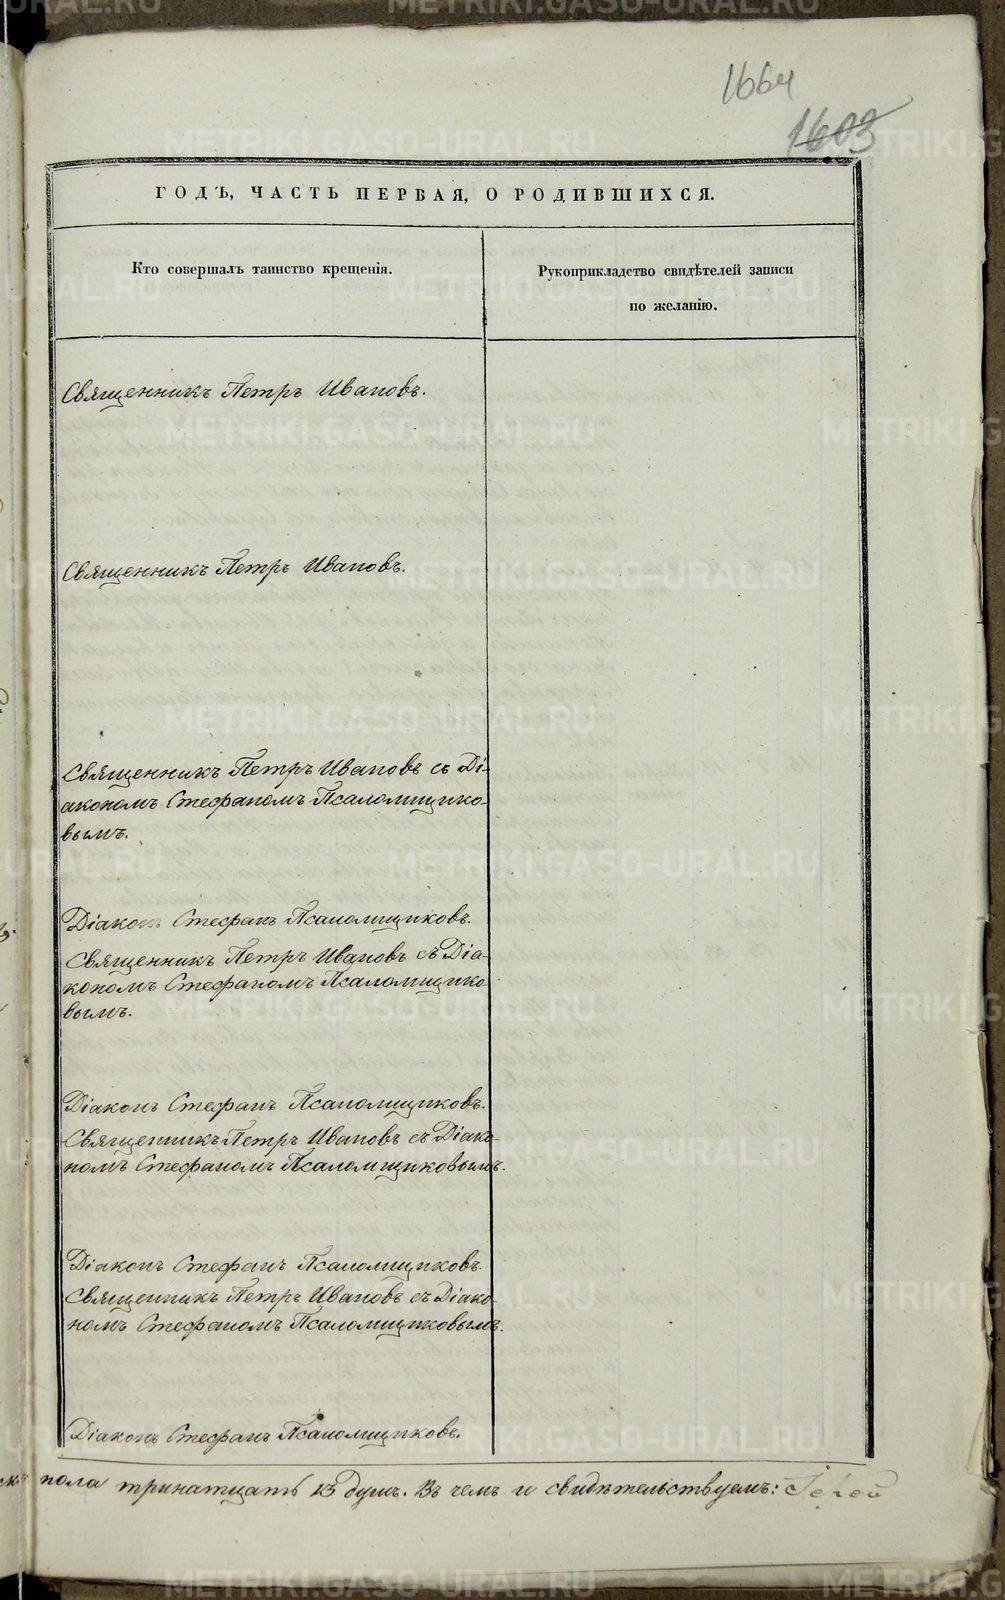 1664
1603
ГОДЪ, ЧАСТЬ ПЕРВАЯ, О РОДИВШИХСЯ.
Кто совершалъ таинство крещенія.
Рукоприкладство свидѣтелей записи
по желанію.
Священникъ Петръ Ивановъ.
Священникъ Петръ Ивановъ.
Священникъ Петръ Ивановъ съ Ді-
акономъ Стефаномъ Псаломщико-
вымъ.
Діаконъ Стефанъ Псаломщиковъ.
Священникъ Петръ Ивановъ съ Діа-
кономъ Стефаномъ Псаломщико-
вымъ.
Діаконъ Стефанъ Псаломщиковъ.
Священникъ Петръ Ивановъ съ Діако-
номъ Стефаномъ Псаломщиковымъ.
Діаконъ Стефанъ Псаломщиковъ.
Священникъ Петръ Ивановъ съ Діако-
номъ Стефаномъ Псаломщиковымъ.
Діаконъ Стефанъ Псаломщиковъ.
пола тринатцать 13 душъ. Въ чемъ и свидѣтельствуемъ: Іерей
METRIKI.GASO-URAL.RU